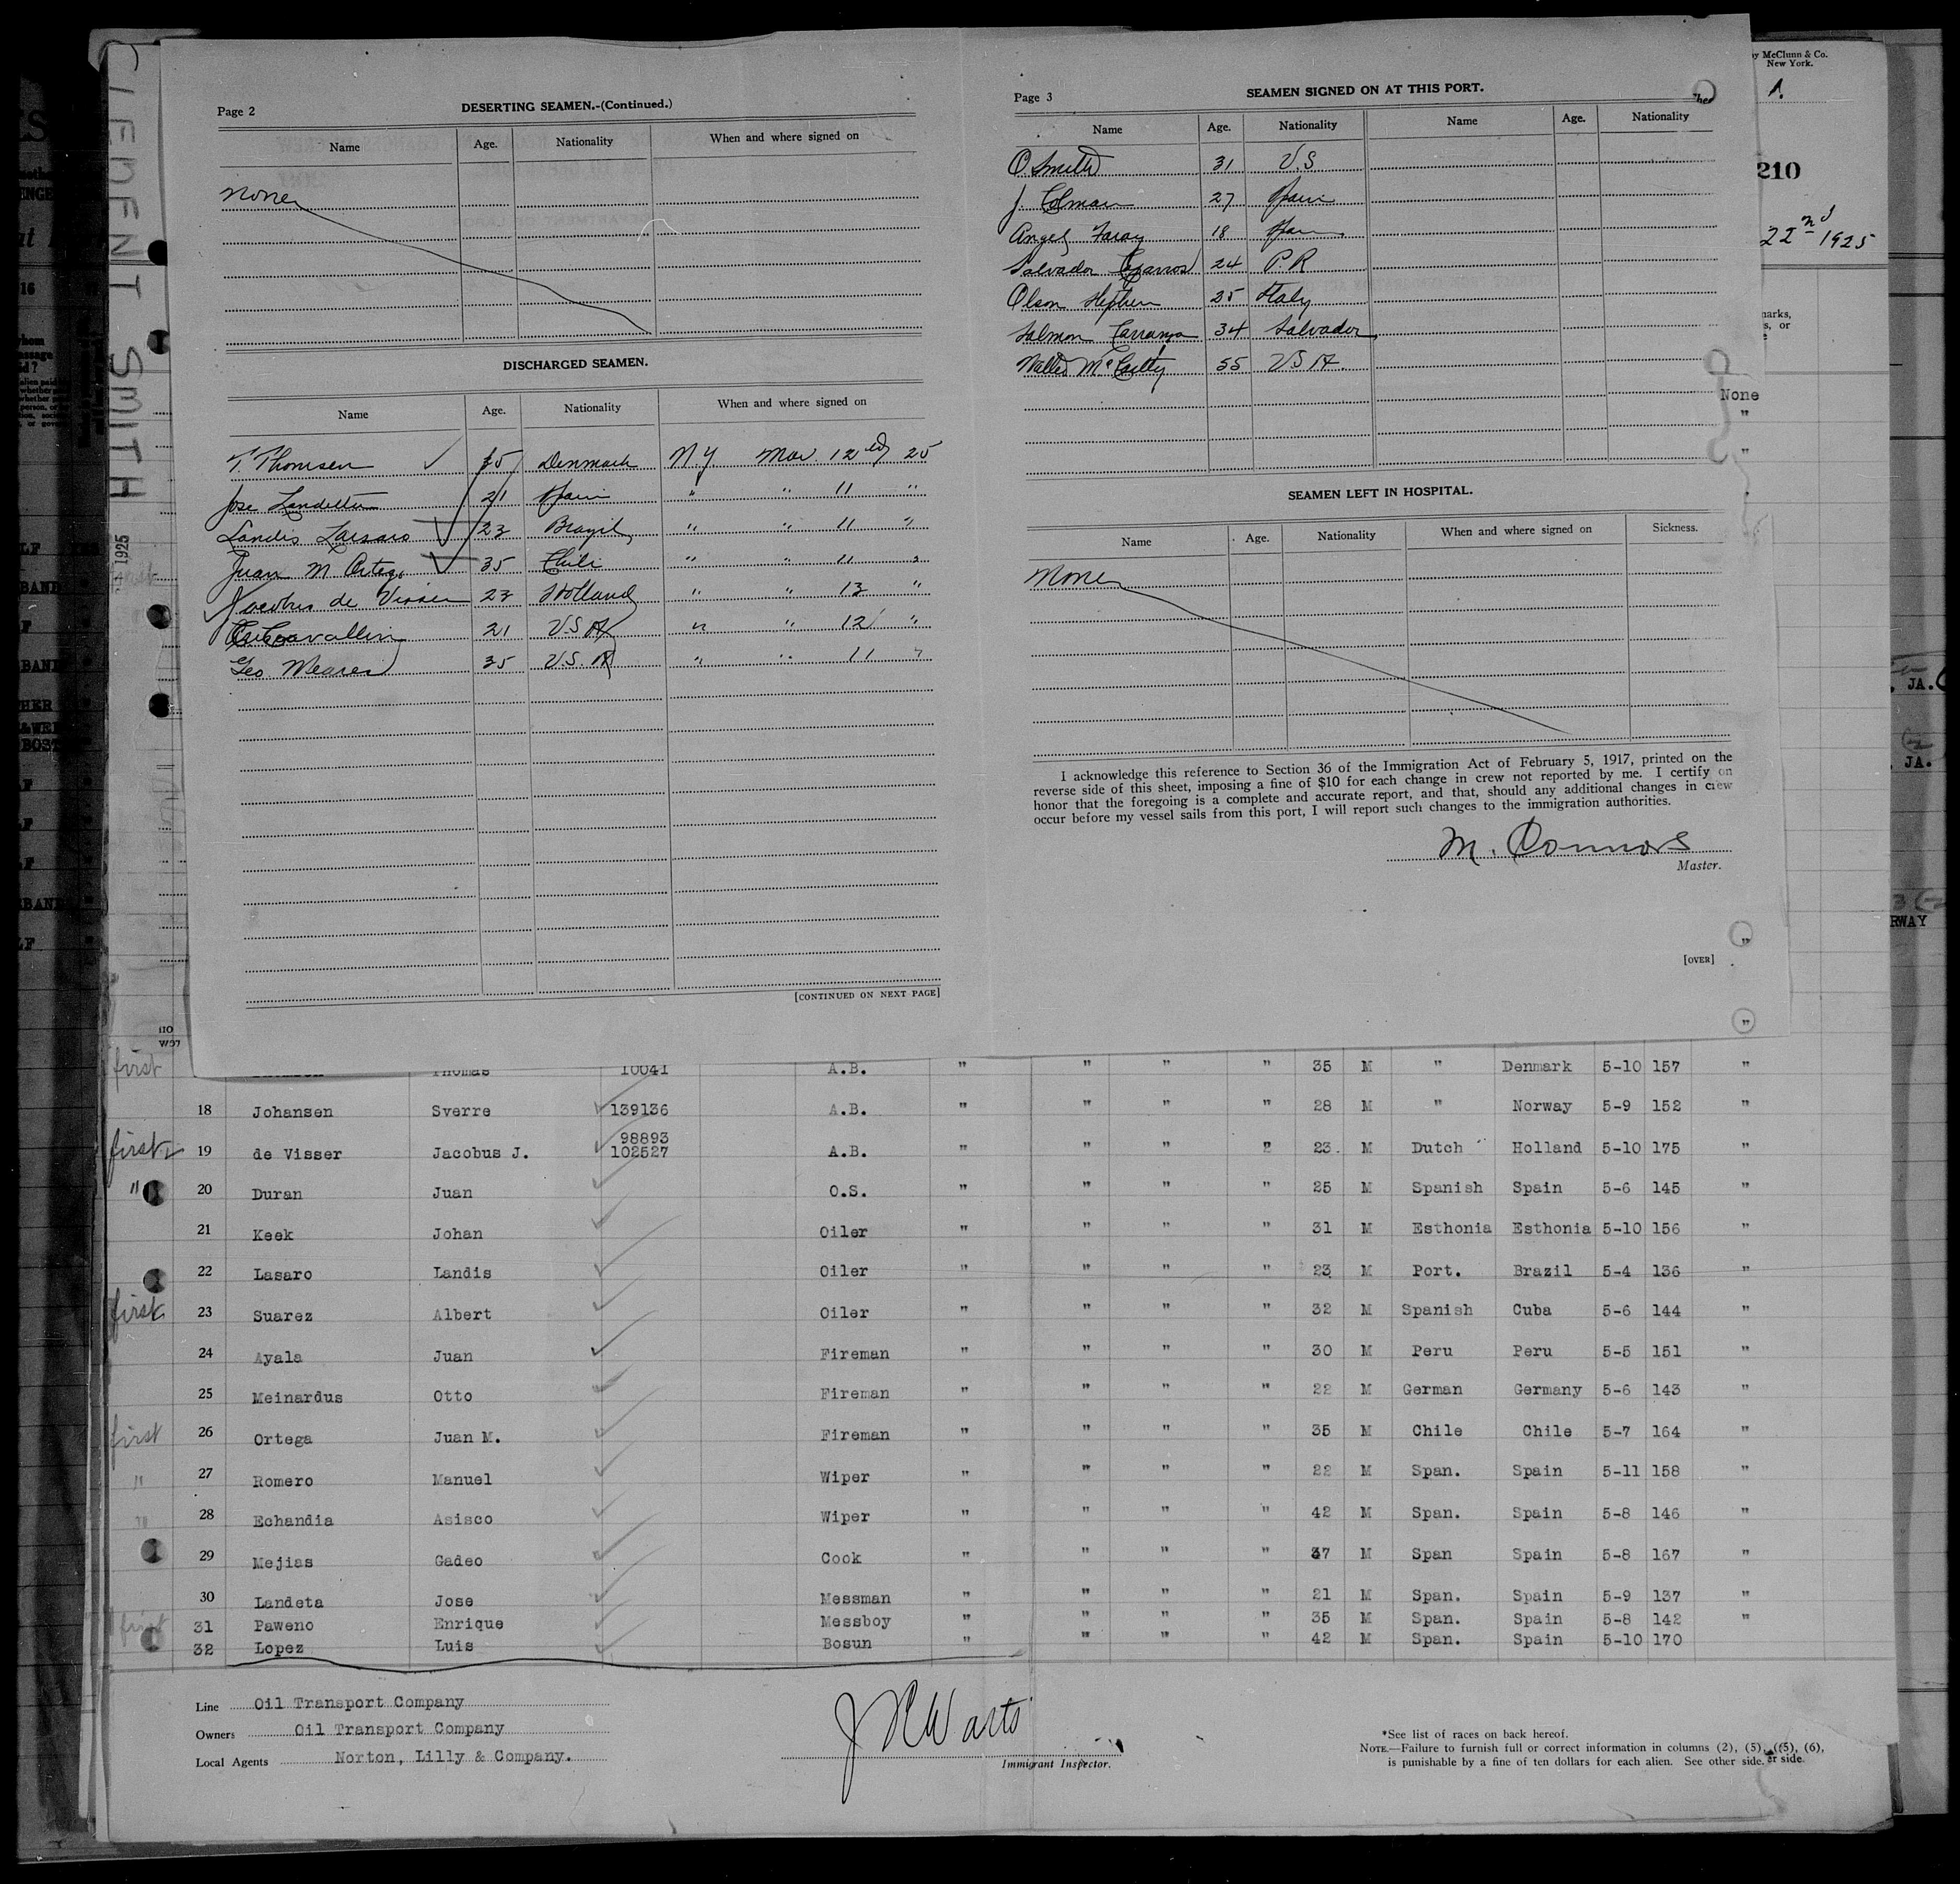 Page 2
DESERTING SEAMEN.-(Continued.)
Name Age. Nationality When and where signed on
None
DISCHARGED SEAMEN.
Name Age. Nationality When and where signed on
T. Thomsen 35 Denmark N.Y Mar. 12 25
Jose Landetta 21 Spain " " 11 "
Landis Lassaro 23 Brazil " " 11 "
Juan M Ortega 35 Chili " " 11 "
Jacobus de Visser 23 Holland " " 13 "
Cavallin 21 U.S.A " " 12 "
Geo. Meares 35 U.S.A " " 11 "
[CONTINUED ON NEXT PAGE]
Page 3
SEAMEN SIGNED ON AT THIS PORT.
Name Age. Nationality Name Age. Nationality
O Smith 31 U.S
J. Colman 27 Spain
Angel Faray 18 Spain
Salvador 24 P.R
Olson Stephen 25 Italy
Salmon Carranza 34 Salvador
Walter McCarthy 55 USA
SEAMEN LEFT IN HOSPITAL.
Name Age. Nationality When and where signed on Sickness.
None
I acknowledge this reference to Section 36 of the Immigration Act of February 5, 1917, printed on the
reverse side of this sheet, imposing a fine of $10 for each change in crew not reported by me. I certify on
honor that the foregoing is a complete and accurate report, and that, should any additional changes in crew
occur before my vessel sails from this port, I will report such changes to the immigration authorities.
M. Connors
Master.
[OVER]
by McClunn & Co.
New York.
1.
210
22nd 1925
None
"
"
CLEMENT SMITH
1925
JA.
JA.
RWAY
first Thomas 10041 A.B. " " " " 35 M " Denmark 5-10 157 "
18 Johansen Sverre 139136 A.B. " " " " 28 M " Norway 5-9 152 "
98893
first 19 de Visser Jacobus J. 102527 A.B. " " " " 23 M Dutch Holland 5-10 175 "
" 20 Duran Juan O.S. " " " " 25 M Spanish Spain 5-6 145 "
21 Keek Johan Oiler " " " " 31 M Esthonia Esthonia 5-10 156 "
22 Lasaro Landis Oiler " " " " 23 M Port. Brazil 5-4 136 "
first 23 Suarez Albert Oiler " " " " 32 M Spanish Cuba 5-6 144 "
24 Ayala Juan Fireman " " " " 30 M Peru Peru 5-5 151 "
25 Meinardus Otto Fireman " " " " 22 M German Germany 5-6 143 "
first 26 Ortega Juan M. Fireman " " " " 35 M Chile Chile 5-7 164 "
" 27 Romero Manuel Wiper " " " " 22 M Span. Spain 5-11 158 "
28 Echandia Asisco Wiper " " " " 42 M Span. Spain 5-8 146 "
29 Mejias Gadeo Cook " " " " 37 M Span Spain 5-8 167 "
30 Landeta Jose Messman " " " " 21 M Span. Spain 5-9 137 "
first 31 Paweno Enrique Messboy " " " " 35 M Span. Spain 5-8 142 "
32 Lopez Luis Bosun " " " " 42 M Span. Spain 5-10 170
Line Oil Transport Company
Owners Oil Transport Company
Local Agents Norton, Lilly & Company.
Immigrant Inspector.
*See list of races on back hereof.
NOTE.—Failure to furnish full or correct information in columns (2), (5), ((5), (6),
is punishable by a fine of ten dollars for each alien. See other side. er side.